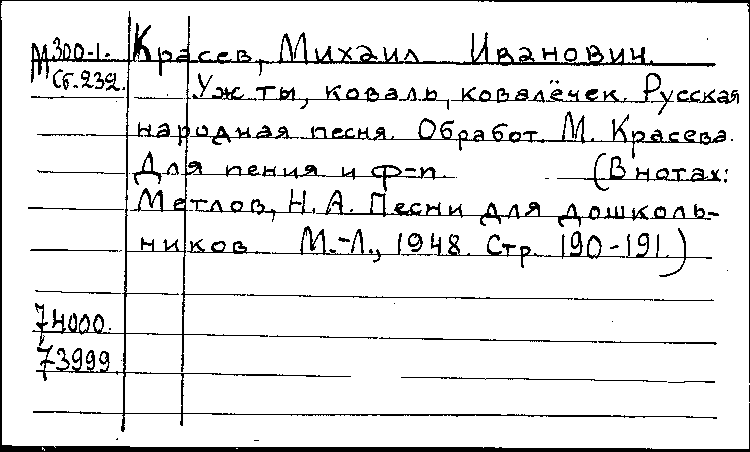 М 300-1. Красев, Михаил Иванович.
Сб. 232.
Уж ты, коваль, ковалёчек. Русская
народная песня. Обработ. М. Красева.
Для пения и ф-п. (В нотах:
Метлов, Н. А. Песни для дошколь-
ников М.-Л., 1948. Стр. 190-191.)
74000.
73999